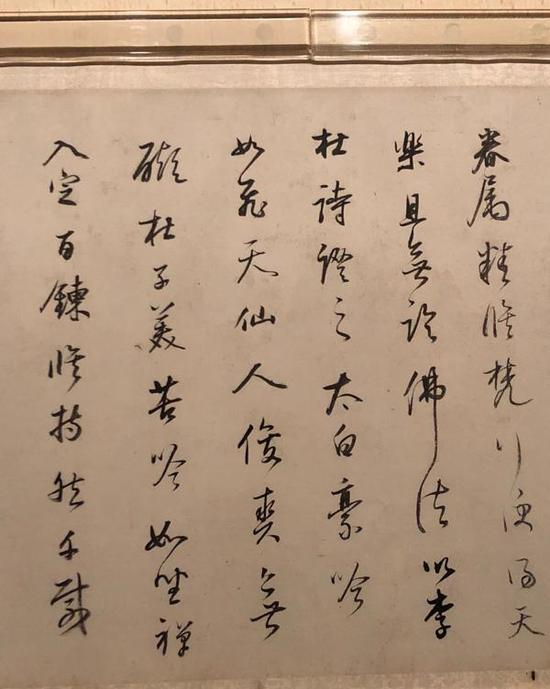 眷属精修梵行便得天
樂且無論佛法以李
杜詩證之太白豪吟
如飛天仙人俊爽無
礙杜子美苦吟如坐禪
入定百鍊修持然千載